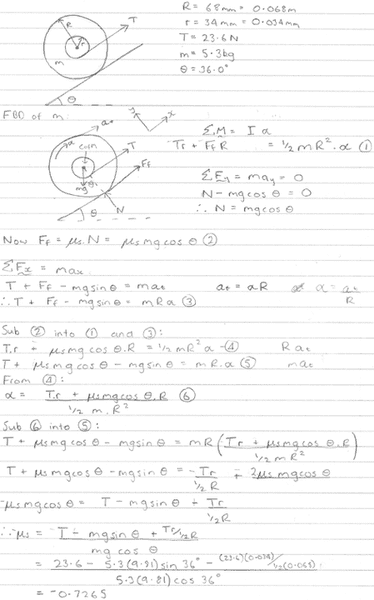 R = 68mm = 0.068m
r = 34mm = 0.034mm
T = 23.6N
m = 5.3kg
θ = 36.0°
R
r
T
m
θ
FBD of m:
a₀
y
x
α
T
Ff
mg
θ
N
ΣM = Iα
Tr + FfR = ½mR².α ①
ΣFy = may = 0
N - mgcosθ = 0
∴ N = mgcosθ
Now Ff = μsN = μsmgcosθ ②
ΣFx = max
T + Ff - mgsinθ = ma₀ a₀ = αR α = a₀/R
∴ T + Ff - mgsinθ = mRα ③
Sub ② into ① and ③:
T.r + μsmgcosθ.R = ½mR²α - ④ Ra₀
T + μsmgcosθ - mgsinθ = mR.α ⑤ ma₀
From ④:
α = (T.r + μsmgcosθ.R) / (½m.R²) ⑥
Sub ⑥ into ⑤:
T + μsmgcosθ - mgsinθ = mR((Tr + μsmgcosθ.R) / (½mR²))
T + μsmgcosθ - mgsinθ = Tr/(½R) + 2μsmgcosθ
-μsmgcosθ = T - mgsinθ + Tr/(½R)
∴ μs = (T - mgsinθ + Tr/½R) / (mgcosθ)
= (23.6 - 5.3(9.81)sin36° - (23.6)(0.034)/½(0.068)) / (5.3(9.81)cos36°)
= -0.7265